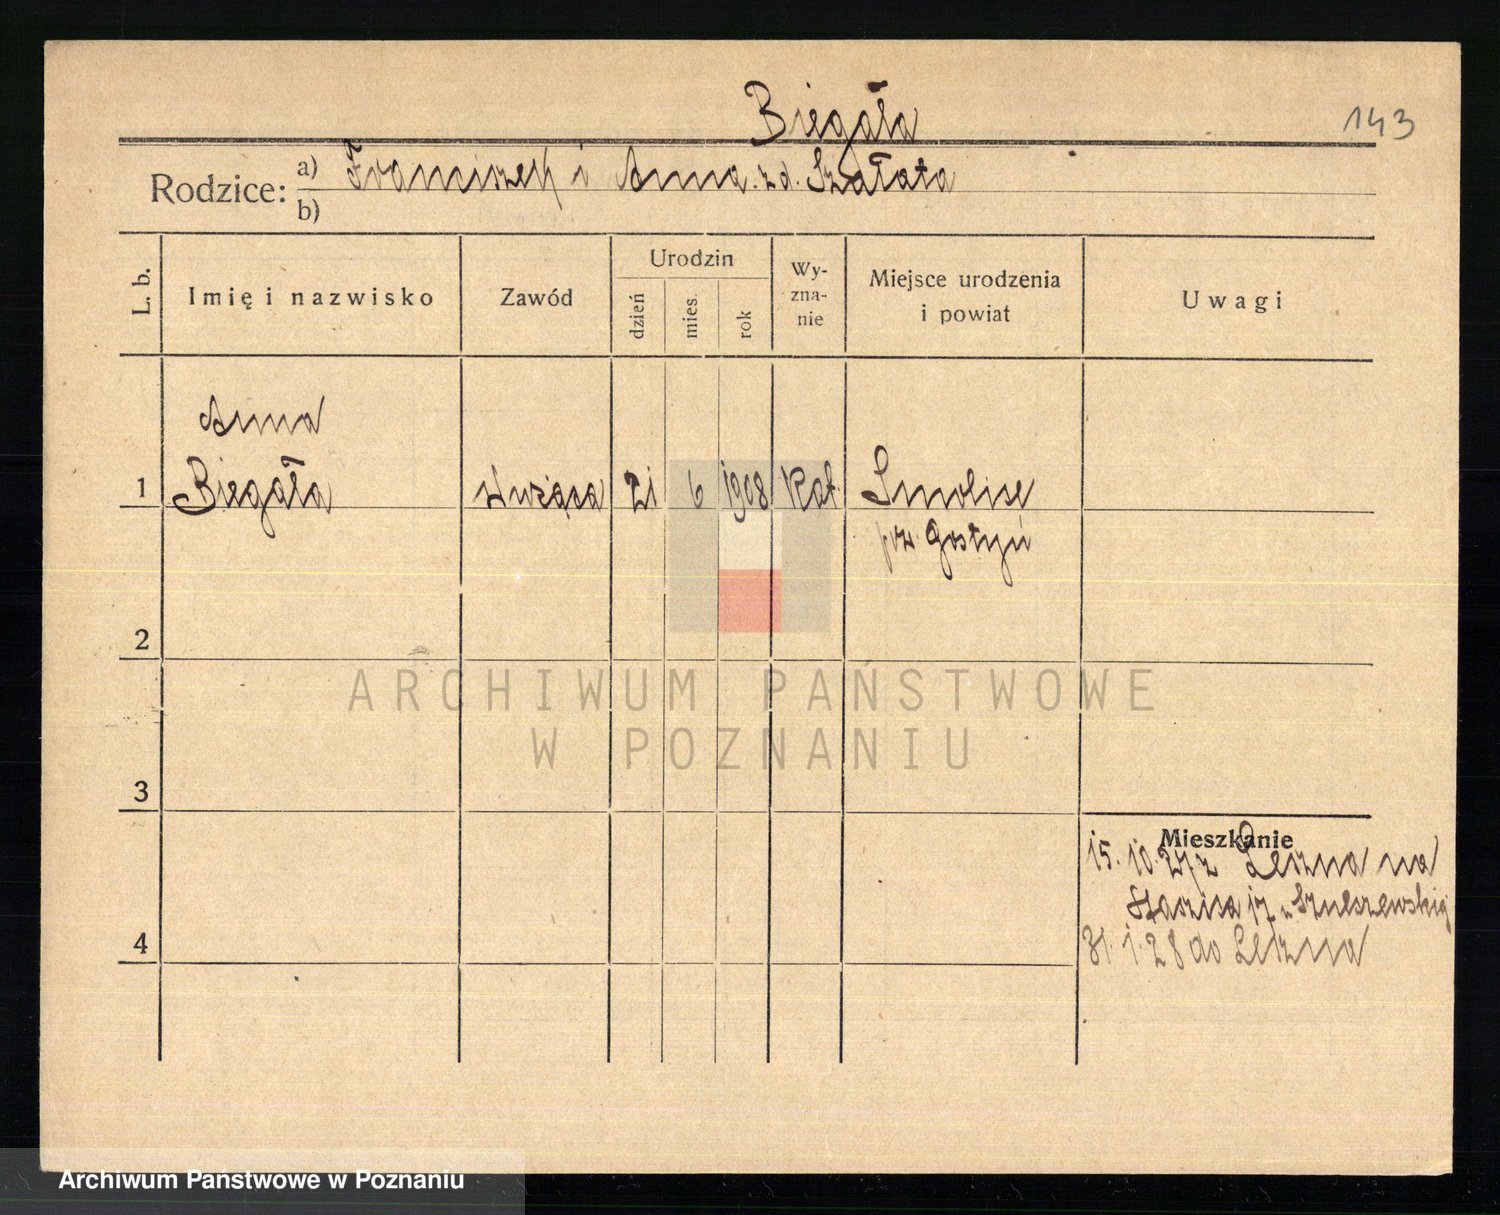 Biegała
143
Rodzice: a) Franciszek i Anna z d. Szałata
b)
L. b.
Imię i nazwisko
Zawód
Urodzin
dzień
mies.
rok
Wy-
zna-
nie
Miejsce urodzenia
i powiat
Uwagi
Anna
1 Biegała służąca 21 6 1908 kat. Smolice
pow. Gostyń
2
3
4
Mieszkanie
15. 10. 27 z Leszna na
Staszica u Szulczewskiej
31. 1. 28 do Leszna
ARCHIWUM PAŃSTWOWE
W POZNANIU
Archiwum Państwowe w Poznaniu